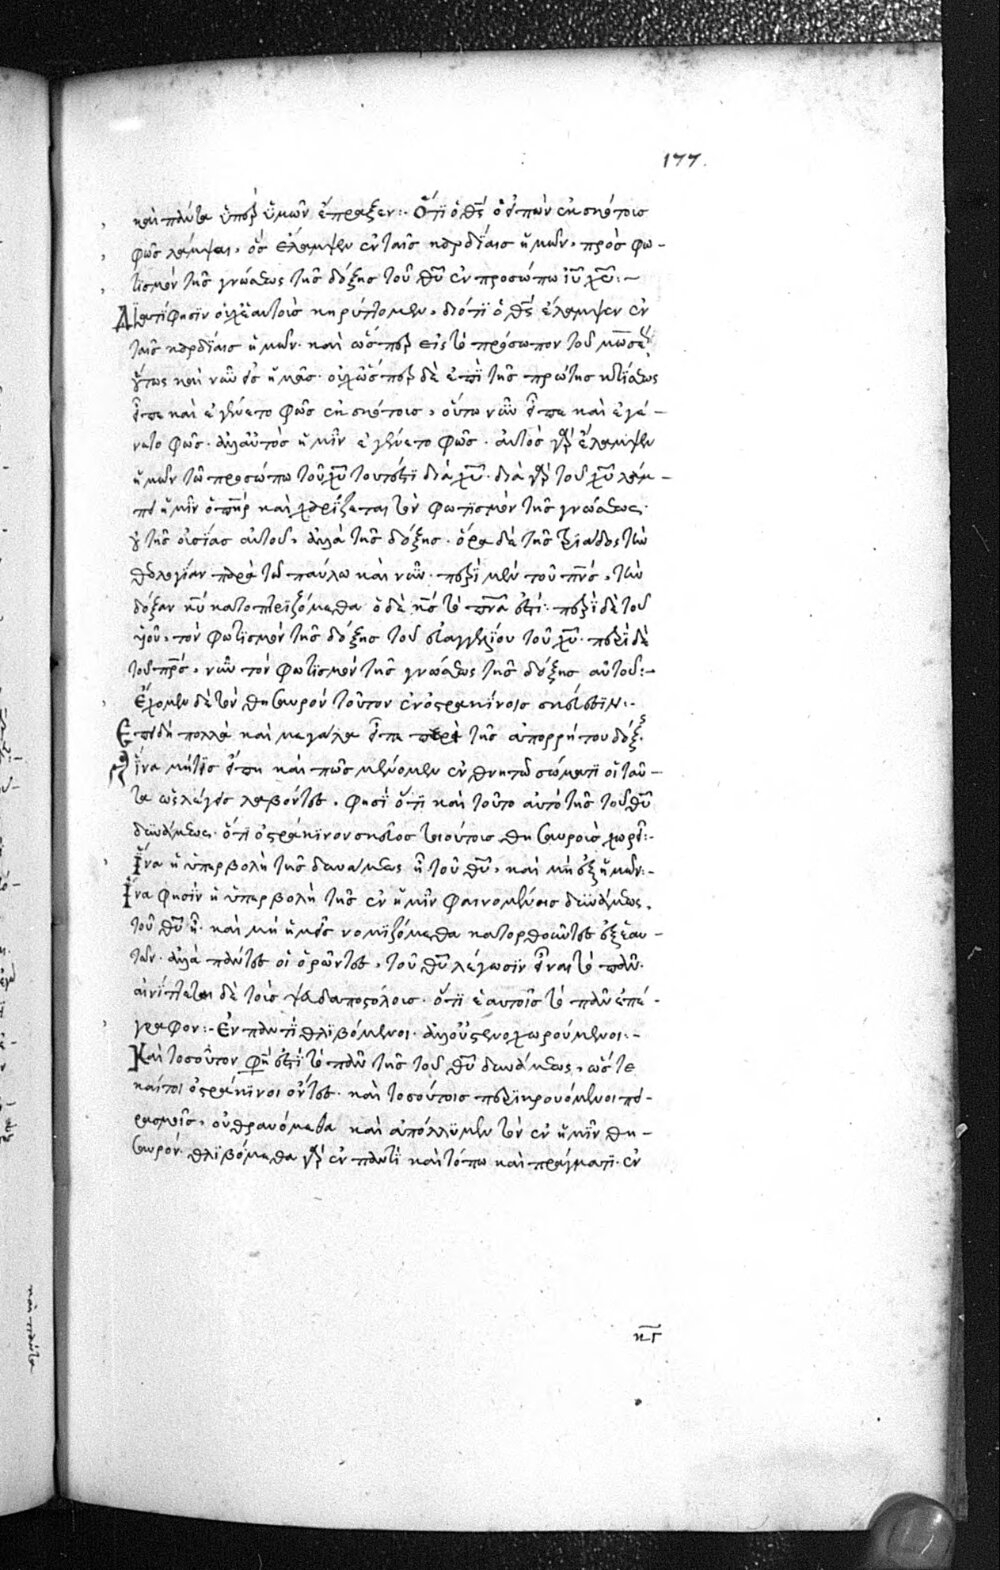 177.
καὶ πάντα ὑπὲρ ὑμῶν ἔπραξεν:· Ὅτι ὁ θς ὁ εἰπὼν ἐκ σκότους
φῶς λάμψαι, ὃς ἔλαμψεν ἐν ταῖς καρδίαις ἡμῶν, πρὸς φω-
τισμὸν τῆς γνώσεως τῆς δόξης τοῦ θυ ἐν προσώπω ιυ χυ:-
Διατί φησιν οὐχ ἑαυτοὺς κηρύττομεν, διότι ὁ θς ἔλαμψεν ἐν
ταῖς καρδίαις ἡμῶν· καὶ ὥσπερ εἰς τὸ πρόσωπον τοῦ μωσέως
οὕτως καὶ νῦν εἰς ἡμᾶς· οὐχ ὥσπερ δὲ ἐπὶ τῆς πρώτης κτίσεως
εἶπε καὶ ἐγένετο φῶς ἐκ σκότους, οὕτω νῦν εἶπε καὶ ἐγέ-
νετο φῶς· ἀλλ' αὐτὸς ἡμῖν ἐγένετο φῶς· αὐτὸς γὰρ ἔλαμψεν
ἡμῶν τῶ προσώπω τοῦ χυ τουτέστι διὰ χυ· διὰ γὰρ τοῦ χυ λάμ-
πει ἡμῖν ὁ πηρ καὶ χαρίζεται τὸν φωτισμὸν τῆς γνώσεως·
οὐ τῆς οὐσίας αὐτοῦ, ἀλλὰ τῆς δόξης· ὅρα δὲ τῆς τριάδος τὴν
θεολογίαν παρὰ τῶ παύλω καὶ νῦν· περὶ μὲν τοῦ πνς, τὴν
δόξαν κυ κατοπτριζόμεθα· ὁ δὲ κς τὸ πνα ἐστί· περὶ δὲ τοῦ
υἱοῦ, τὸν φωτισμὸν τῆς δόξης τοῦ εὐαγγελίου τοῦ χυ· περὶ δὲ
τοῦ πρς, νῦν τὸν φωτισμὸν τῆς γνώσεως τῆς δόξης αὐτοῦ:-
Ἔχομεν δὲ τὸν θησαυρὸν τοῦτον ἐν ὀστρακίνοις σκεύεσιν:-
Ἐπειδὴ πολλὰ καὶ μεγάλα εἶπε περὶ τῆς ἀπορρήτου δόξης·
ἵνα μήτις εἴπη καὶ πῶς μένομεν ἐν θνητῶ σώματι οἱ ταῦ-
τα λαβόντες, φησὶ ὅτι καὶ τοῦτο αὐτὸ τῆς τοῦ θυ
δυνάμεως· ὅτι ὀστράκινον σκεῦος τοιούτους θησαυροὺς χωρεῖ:-
Ἵνα ἡ ὑπερβολὴ τῆς δυνάμεως ἦ τοῦ θυ, καὶ μὴ ἐξ ἡμῶν:-
Ἵνα φησὶν ἡ ὑπερβολὴ τῆς ἐν ἡμῖν φαινομένης δυνάμεως,
τοῦ θυ ἦ· καὶ μὴ ἡμεῖς νομιζόμεθα κατορθοῦντες ἐξ ἑαυ-
τῶν· ἀλλὰ πάντες οἱ ὁρῶντες, τοῦ θυ λέγωσιν εἶναι τὸ πᾶν·
αἰνίττεται δὲ τοὺς ψευδαποστόλους· ὅτι ἑαυτοῖς τὸ πᾶν ἐπέ-
γραφον:- Ἐν παντὶ θλιβόμενοι· ἀλλ' οὐ στενοχωρούμενοι:-
Καὶ τοσοῦτον φη ἐστὶ τὸ πᾶν τῆς τοῦ θυ δυνάμεως, ὥστε
καίτοι ὀστράκινοι ὄντες· καὶ τοσούτοις περικρουόμενοι πει-
ρασμοῖς, οὐ θραυόμεθα καὶ ἀπόλλυμεν τὸν ἐν ἡμῖν θη-
σαυρόν· θλιβόμεθα γὰρ ἐν παντὶ καὶ τόπω καὶ πράγματι· ἐν
κγ
καὶ πάντα